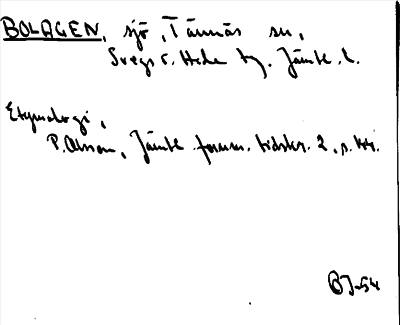 BOLAGEN, sjö, Tännäs sn,
Svegs o. Hede tg. Jämtl. l.
Etymologi,
P. Olsson, Jämtl. fornm. tidskr. 2, s.
BJ-54